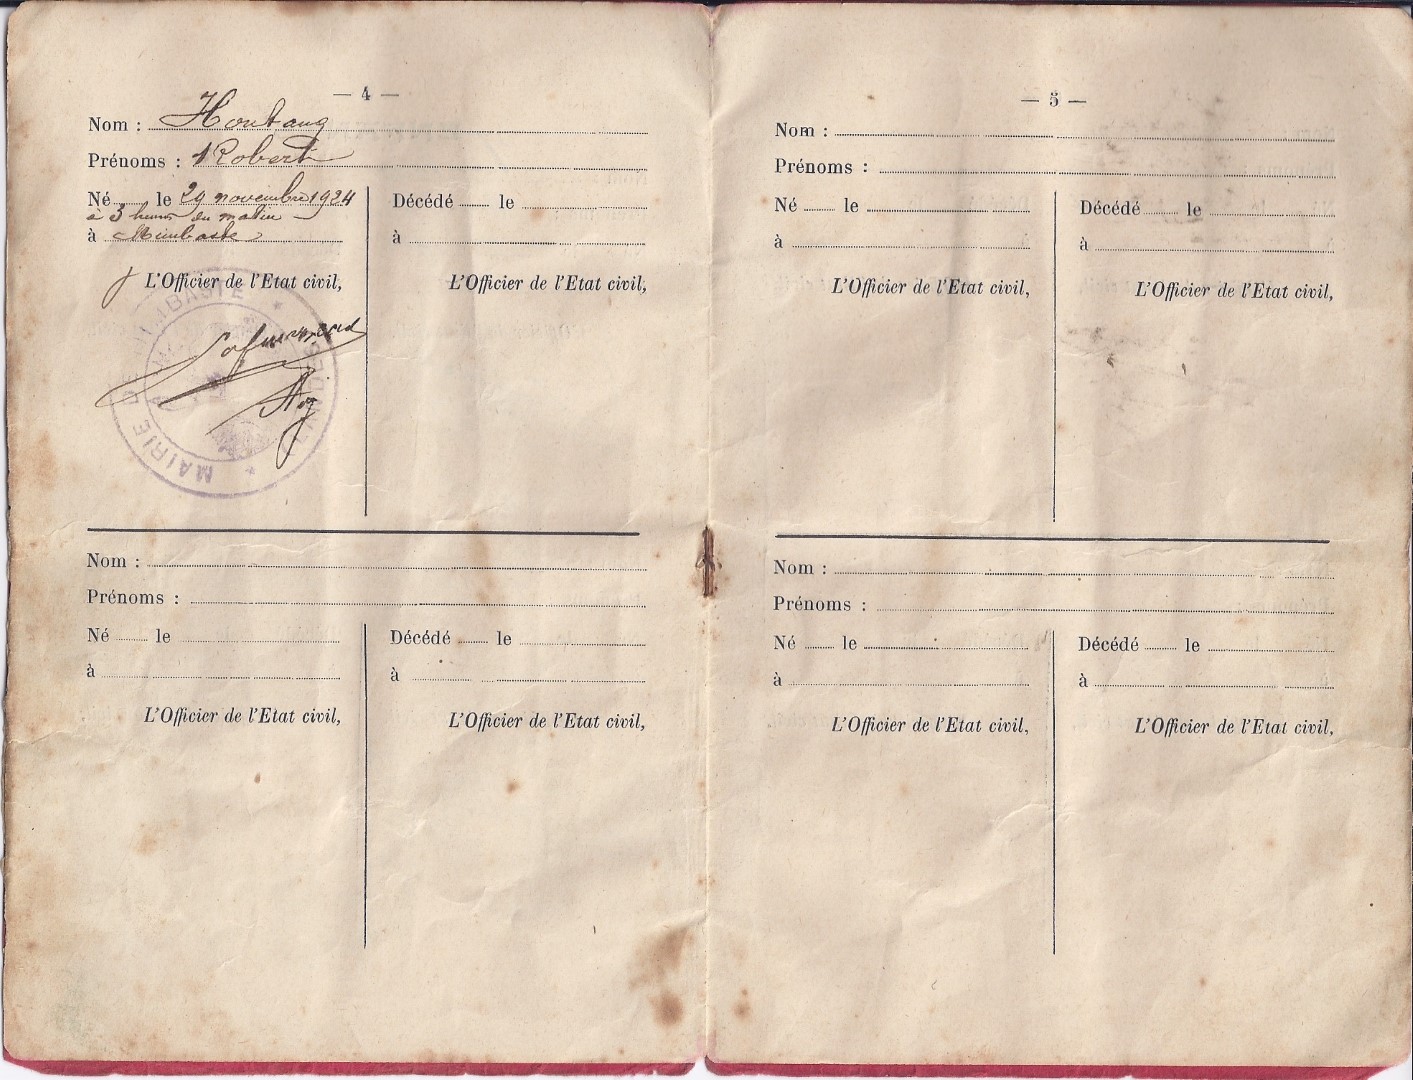 — 4 —
Nom : Hontang
Prénoms : Robert
Né le 29 novembre 1924
à 3 heures du matin
à Mimbaste
Décédé le
à
L'Officier de l'Etat civil,
L'Officier de l'Etat civil,
MAIRIE DE MIMBASTE
Nom :
Prénoms :
Né le
à
Décédé le
à
L'Officier de l'Etat civil,
L'Officier de l'Etat civil,
— 5 —
Nom :
Prénoms :
Né le
à
Décédé le
à
L'Officier de l'Etat civil,
L'Officier de l'Etat civil,
Nom :
Prénoms :
Né le
à
Décédé le
à
L'Officier de l'Etat civil,
L'Officier de l'Etat civil,